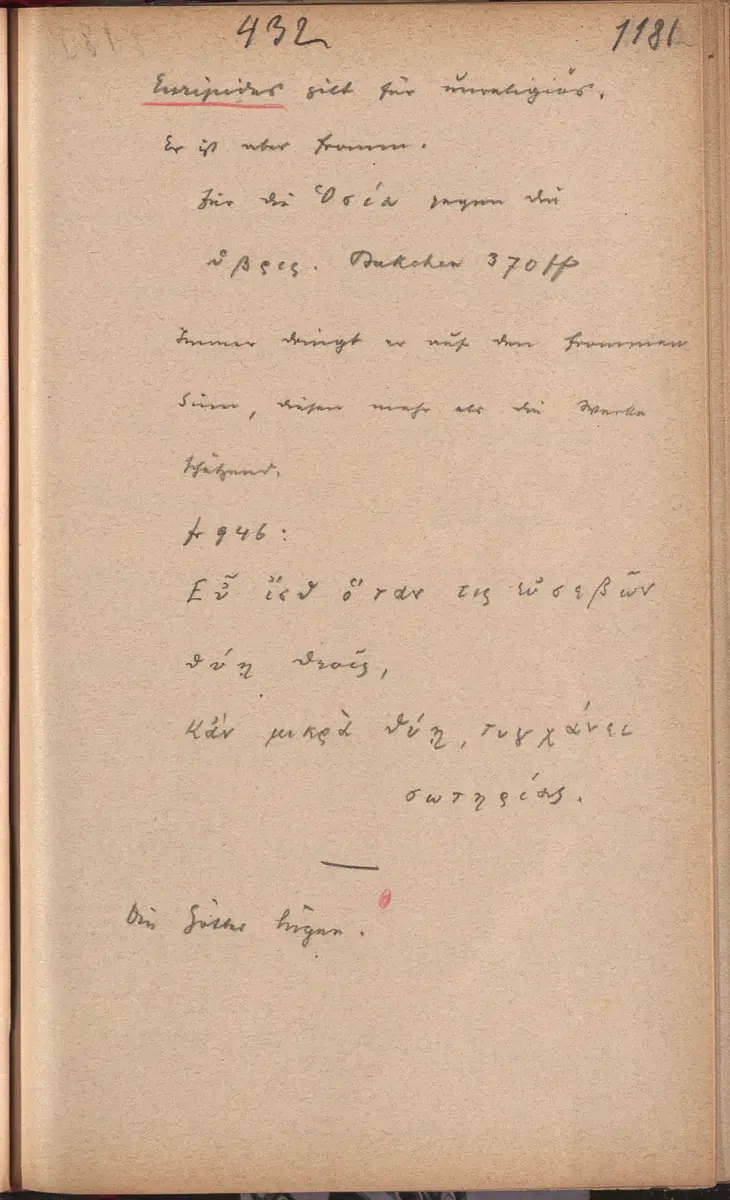 432
1181
Euripides gilt für unreligiös.
Er ist aber fromm.
Für die Ὁσία gegen die
ὕβρις. Bakchen 370ff
Immer dringt er auf den frommen
Sinn, diesen mehr als die Werke
schätzend.
fr 946:
Εὖ ἴσθ ὅταν τις εὐσεβῶν
θύῃ θεοῖς,
Κἂν μικρὰ θύῃ, τυγχάνει
σωτηρίας.
Die Götter lügen.